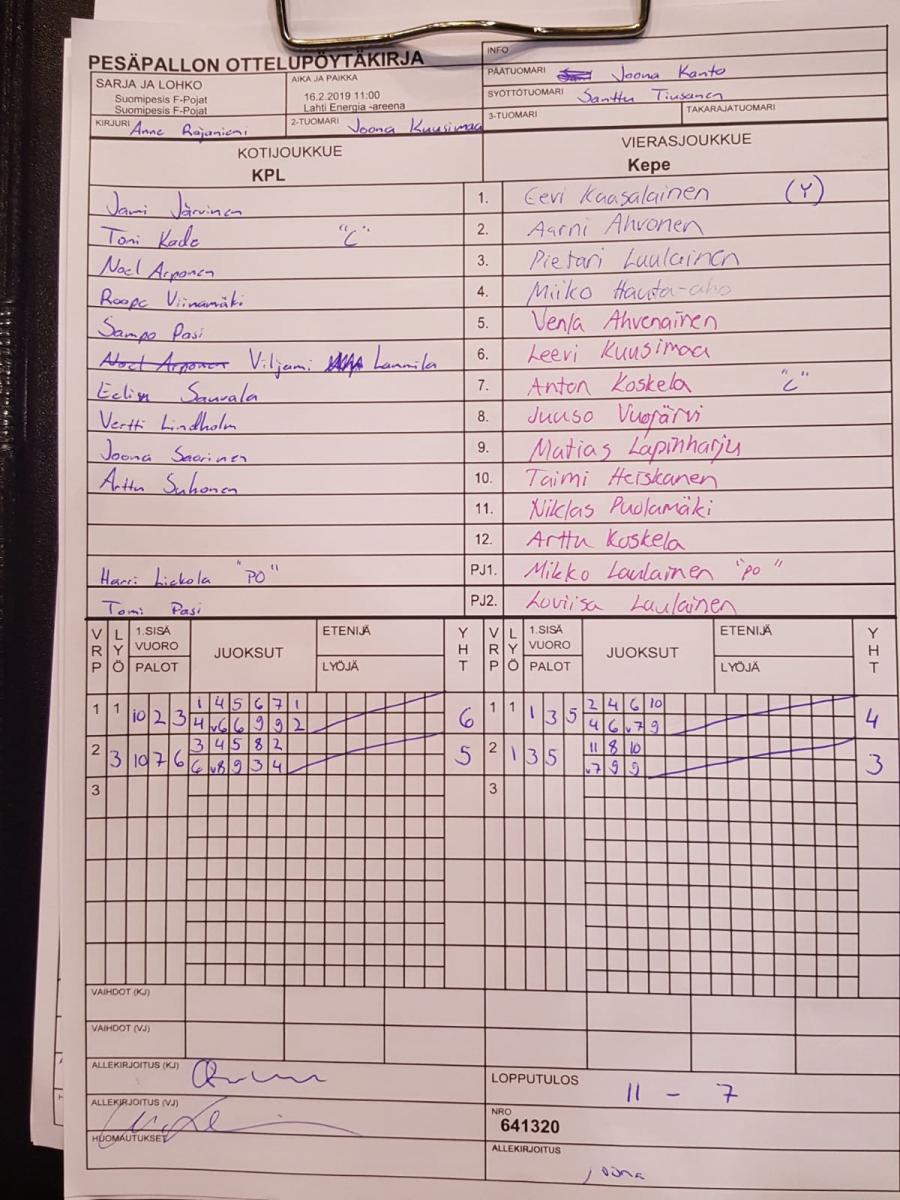 PESÄPALLON OTTELUPÖYTÄKIRJA
INFO
SARJA JA LOHKO
Suomipesis F-Pojat
Suomipesis F-Pojat
AIKA JA PAIKKA
16.2.2019 11:00
Lahti Energia -areena
PÄÄTUOMARI Joona Kanto
SYÖTTÖTUOMARI Santtu Tiusanen
KIRJURI Anne Rajaniemi
2-TUOMARI Joona Kuusimaa
3-TUOMARI
TAKARAJATUOMARI
KOTIJOUKKUE
KPL
VIERASJOUKKUE
Kepe
Jami Järvinen 1. Eevi Kaasalainen (Y)
Toni Kade "C" 2. Aarni Ahvonen
Noel Arponen 3. Pietari Laulainen
Roope Viinamäki 4. Miiko Hauta-aho
Sampo Pasi 5. Venla Ahvenainen
Noel Arponen Viljami Lammila 6. Leevi Kuusimaa
Sauvala 7. Anton Koskela "C"
Vertti Lindholm 8. Juuso Vuojärvi
Joona Saarinen 9. Matias Lapinharju
Arttu Suhonen 10. Taimi Heiskanen
11. Niklas Puolamäki
12. Arttu Koskela
Harri Liekola "PO" PJ1. Mikko Laulainen "PO"
Tomi Pasi PJ2. Loviisa Laulainen
VRP LYÖ 1.SISÄ VUORO PALOT JUOKSUT ETENIJÄ LYÖJÄ YHT VRP LYÖ 1.SISÄ VUORO PALOT JUOKSUT ETENIJÄ LYÖJÄ YHT
1 1 10 2 3 1 4 5 6 7 1 6 1 1 1 3 5 2 4 6 10 4
4 v6 6 9 9 2 4 6 v7 9
2 3 10 7 6 3 4 5 8 2 5 2 1 3 5 11 8 10 3
6 v8 9 3 4 v7 9 9
3 3
VAIHDOT (KJ)
VAIHDOT (VJ)
ALLEKIRJOITUS (KJ)
LOPPUTULOS 11 - 7
ALLEKIRJOITUS (VJ)
NRO
641320
HUOMAUTUKSET
ALLEKIRJOITUS